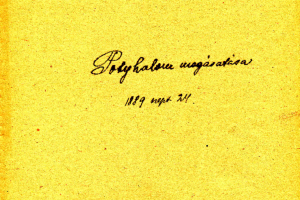 Potyhalom megásatása
1889 sept. 24.